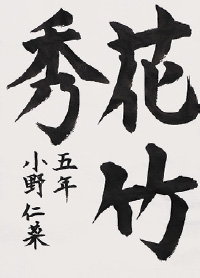 花竹
秀
五年
小野仁菜